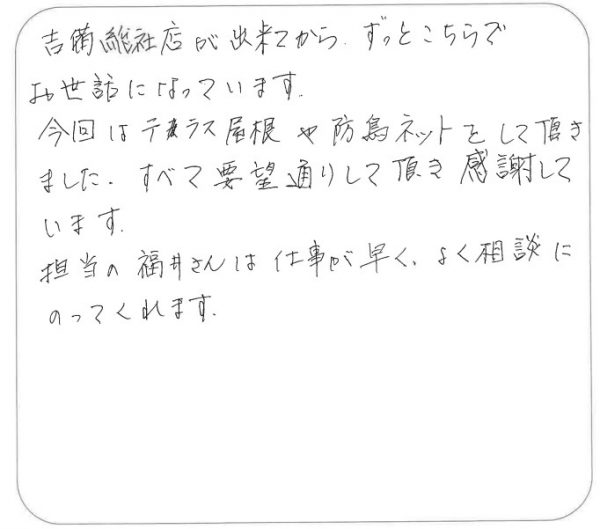 吉備総社店が出来てから、ずっとこちらで
お世話になっています。
今回はテラス屋根や防鳥ネットをして頂き
ました。すべて要望通りして頂き感謝して
います。
担当の福井さんは仕事が早く、よく相談に
のってくれます。